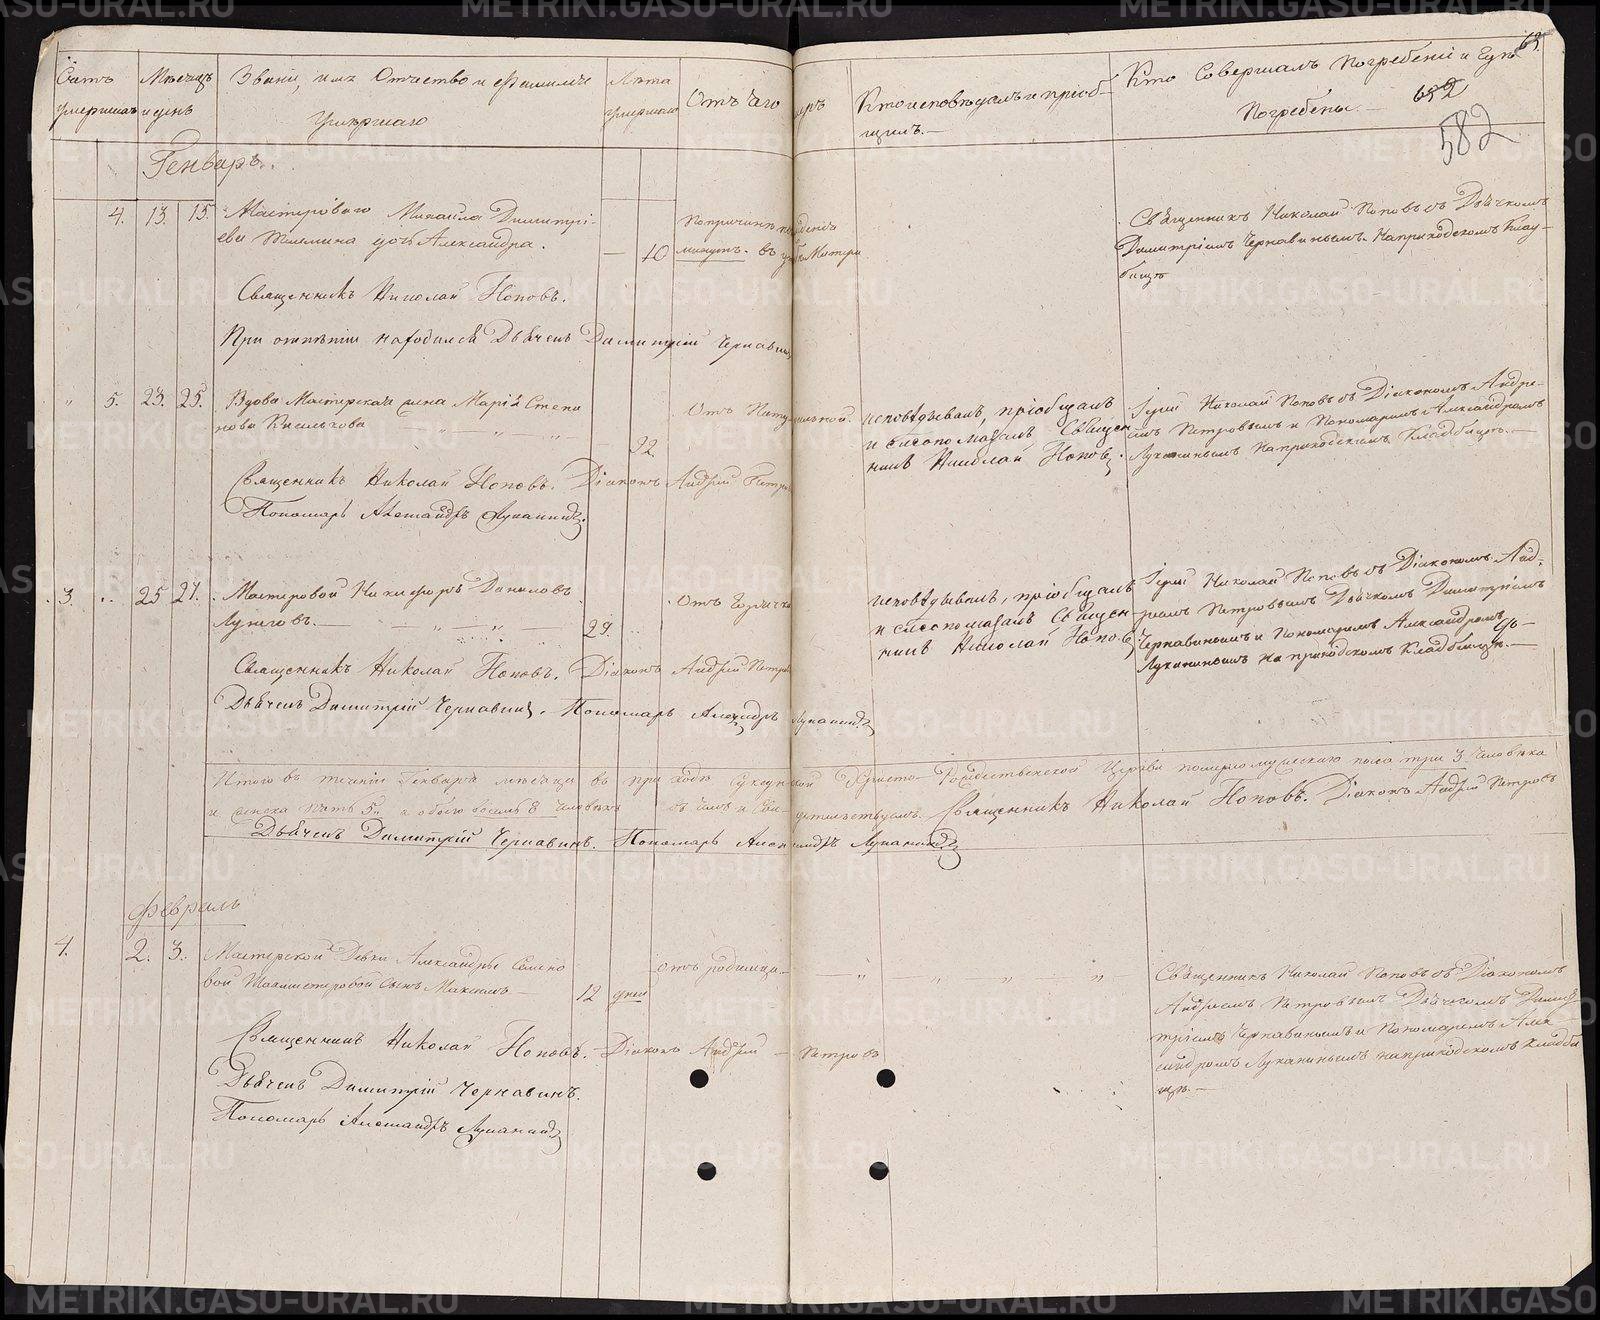 Счетъ умершихъ
Мѣсяцъ и день
Званіе, имя Отчество и Фамиліе
умершаго
Лѣта умершаго
Отъ чего умеръ
Кто исповѣдывалъ и пріоб-
щилъ.
Кто Совершалъ Погребеніе и гдѣ
Погребены.
63
652
582
Генварь.
4. 13. 15. Мастероваго Михаила Димитрі-
ева дочь Александра. — 10 минутъ.
Священникъ Николай Поповъ съ Дьячкомъ
Димитріемъ Чернавинымъ. На приходскомъ Клад-
бищѣ
Священникъ Николай Поповъ.
При отпѣтіи находился Дьячекъ Димитрій Чернавинъ
5. 23. 25. Вдова Мастерская жена Марія Степа
нова 92
исповѣдывалъ, пріобщалъ
и Священ
никъ Николай Поповъ.
Іерей Николай Поповъ съ Діакономъ Андре-
емъ Петровымъ и Пономаремъ Александромъ
Луканинымъ на приходскомъ Кладбищѣ.—
Священникъ Николай Поповъ. Діаконъ Андрей Петровъ
Пономарь Александръ Луканинъ.
3. 25 27. Мастеровой Никифоръ Даниловъ
29. Отъ Горячки
исповѣдывалъ, пріобщалъ
и Священ-
никъ Николай Поповъ
Іерей Николай Поповъ съ Діакономъ Анд-
реемъ Петровымъ Дьячкомъ Димитріемъ
Чернавинымъ и Пономаремъ Александромъ
Луканинымъ на приходскомъ Кладбищѣ.—
Священникъ Николай Поповъ. Діаконъ Андрей Петровъ
Дьячекъ Димитрій Чернавинъ. Пономарь Александръ Луканинъ
Итого въ теченіи Генваря мѣсяца въ приходѣ Христо-Рождественской Церкви померло мужескаго пола три 3 человѣка
и женска пять 5. а обоего восемь 8 человѣкъ въ чемъ и свидѣтельствуемъ. Священникъ Николай Поповъ. Діаконъ Андрей Петровъ
Дьячекъ Димитрій Чернавинъ. Пономарь Александръ Луканинъ
Февраль
4. 2. 3. Мастерской Дѣвки Александры Семено
вой сынъ Максимъ — 12 дней
отъ родимца.
Священникъ Николай Поповъ съ Діакономъ
Андреемъ Петровымъ Дьячкомъ Дими
тріемъ Чернавинымъ и Пономаремъ Алек
сандромъ Луканинымъ на приходскомъ Кладби
щѣ.—
Священникъ Николай Поповъ. Діаконъ Андрей — Петровъ
Дьячекъ Димитрій Чернавинъ.
Пономарь Александръ Луканинъ
METRIKI.GASO-URAL.RU